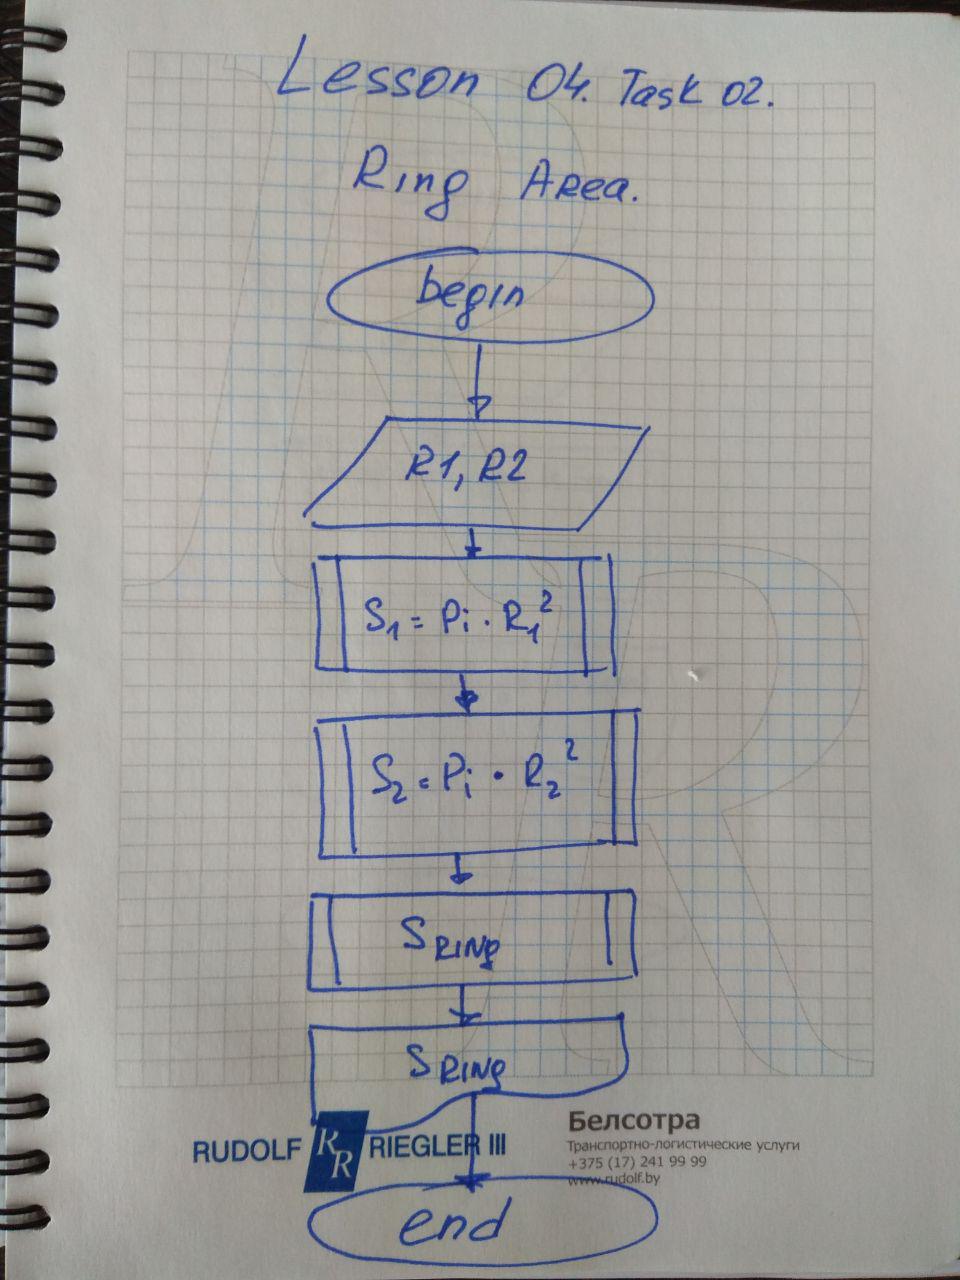 Lesson 04. Task 02.
Ring Area.
begin
R1, R2
S₁ = Pi · R₁²
S₂ = Pi · R₂²
S RING
S RING
RUDOLF RR RIEGLER III
Белсотра
Транспортно-логистические услуги
+375 (17) 241 99 99
www.rudolf.by
end